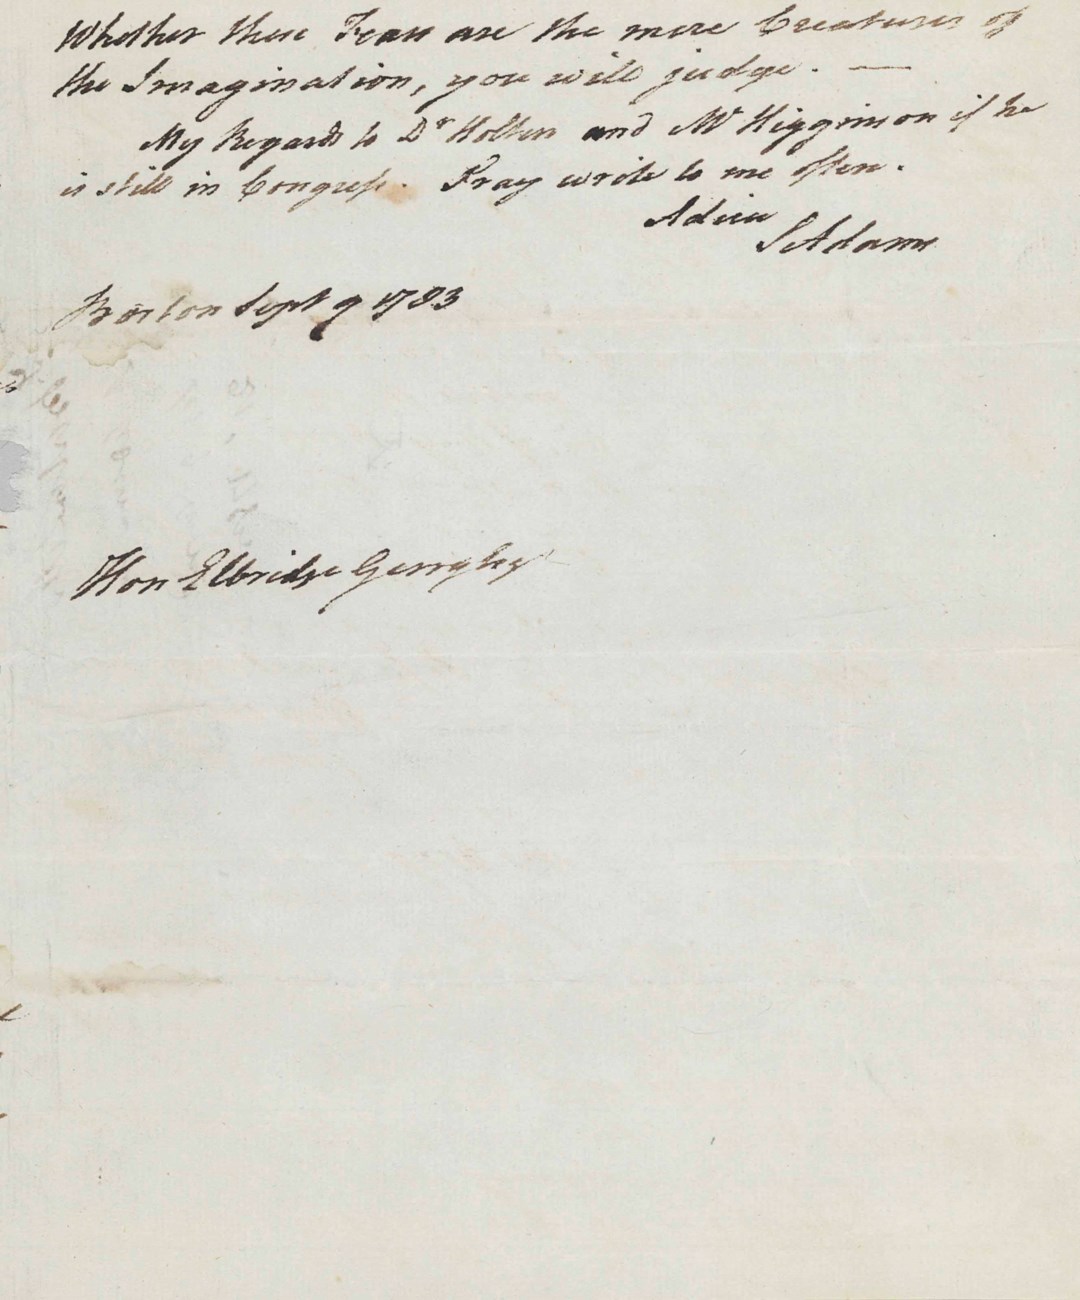 Whether these Fears are the mere Creatures of
the Imagination, you will judge. —
My Regards to Dr Holten and Mr Higginson if he
is still in Congress. Pray write to me often.
Adieu
S Adams
Boston Sept 9 1783
Hon Elbridge Gerry Esq